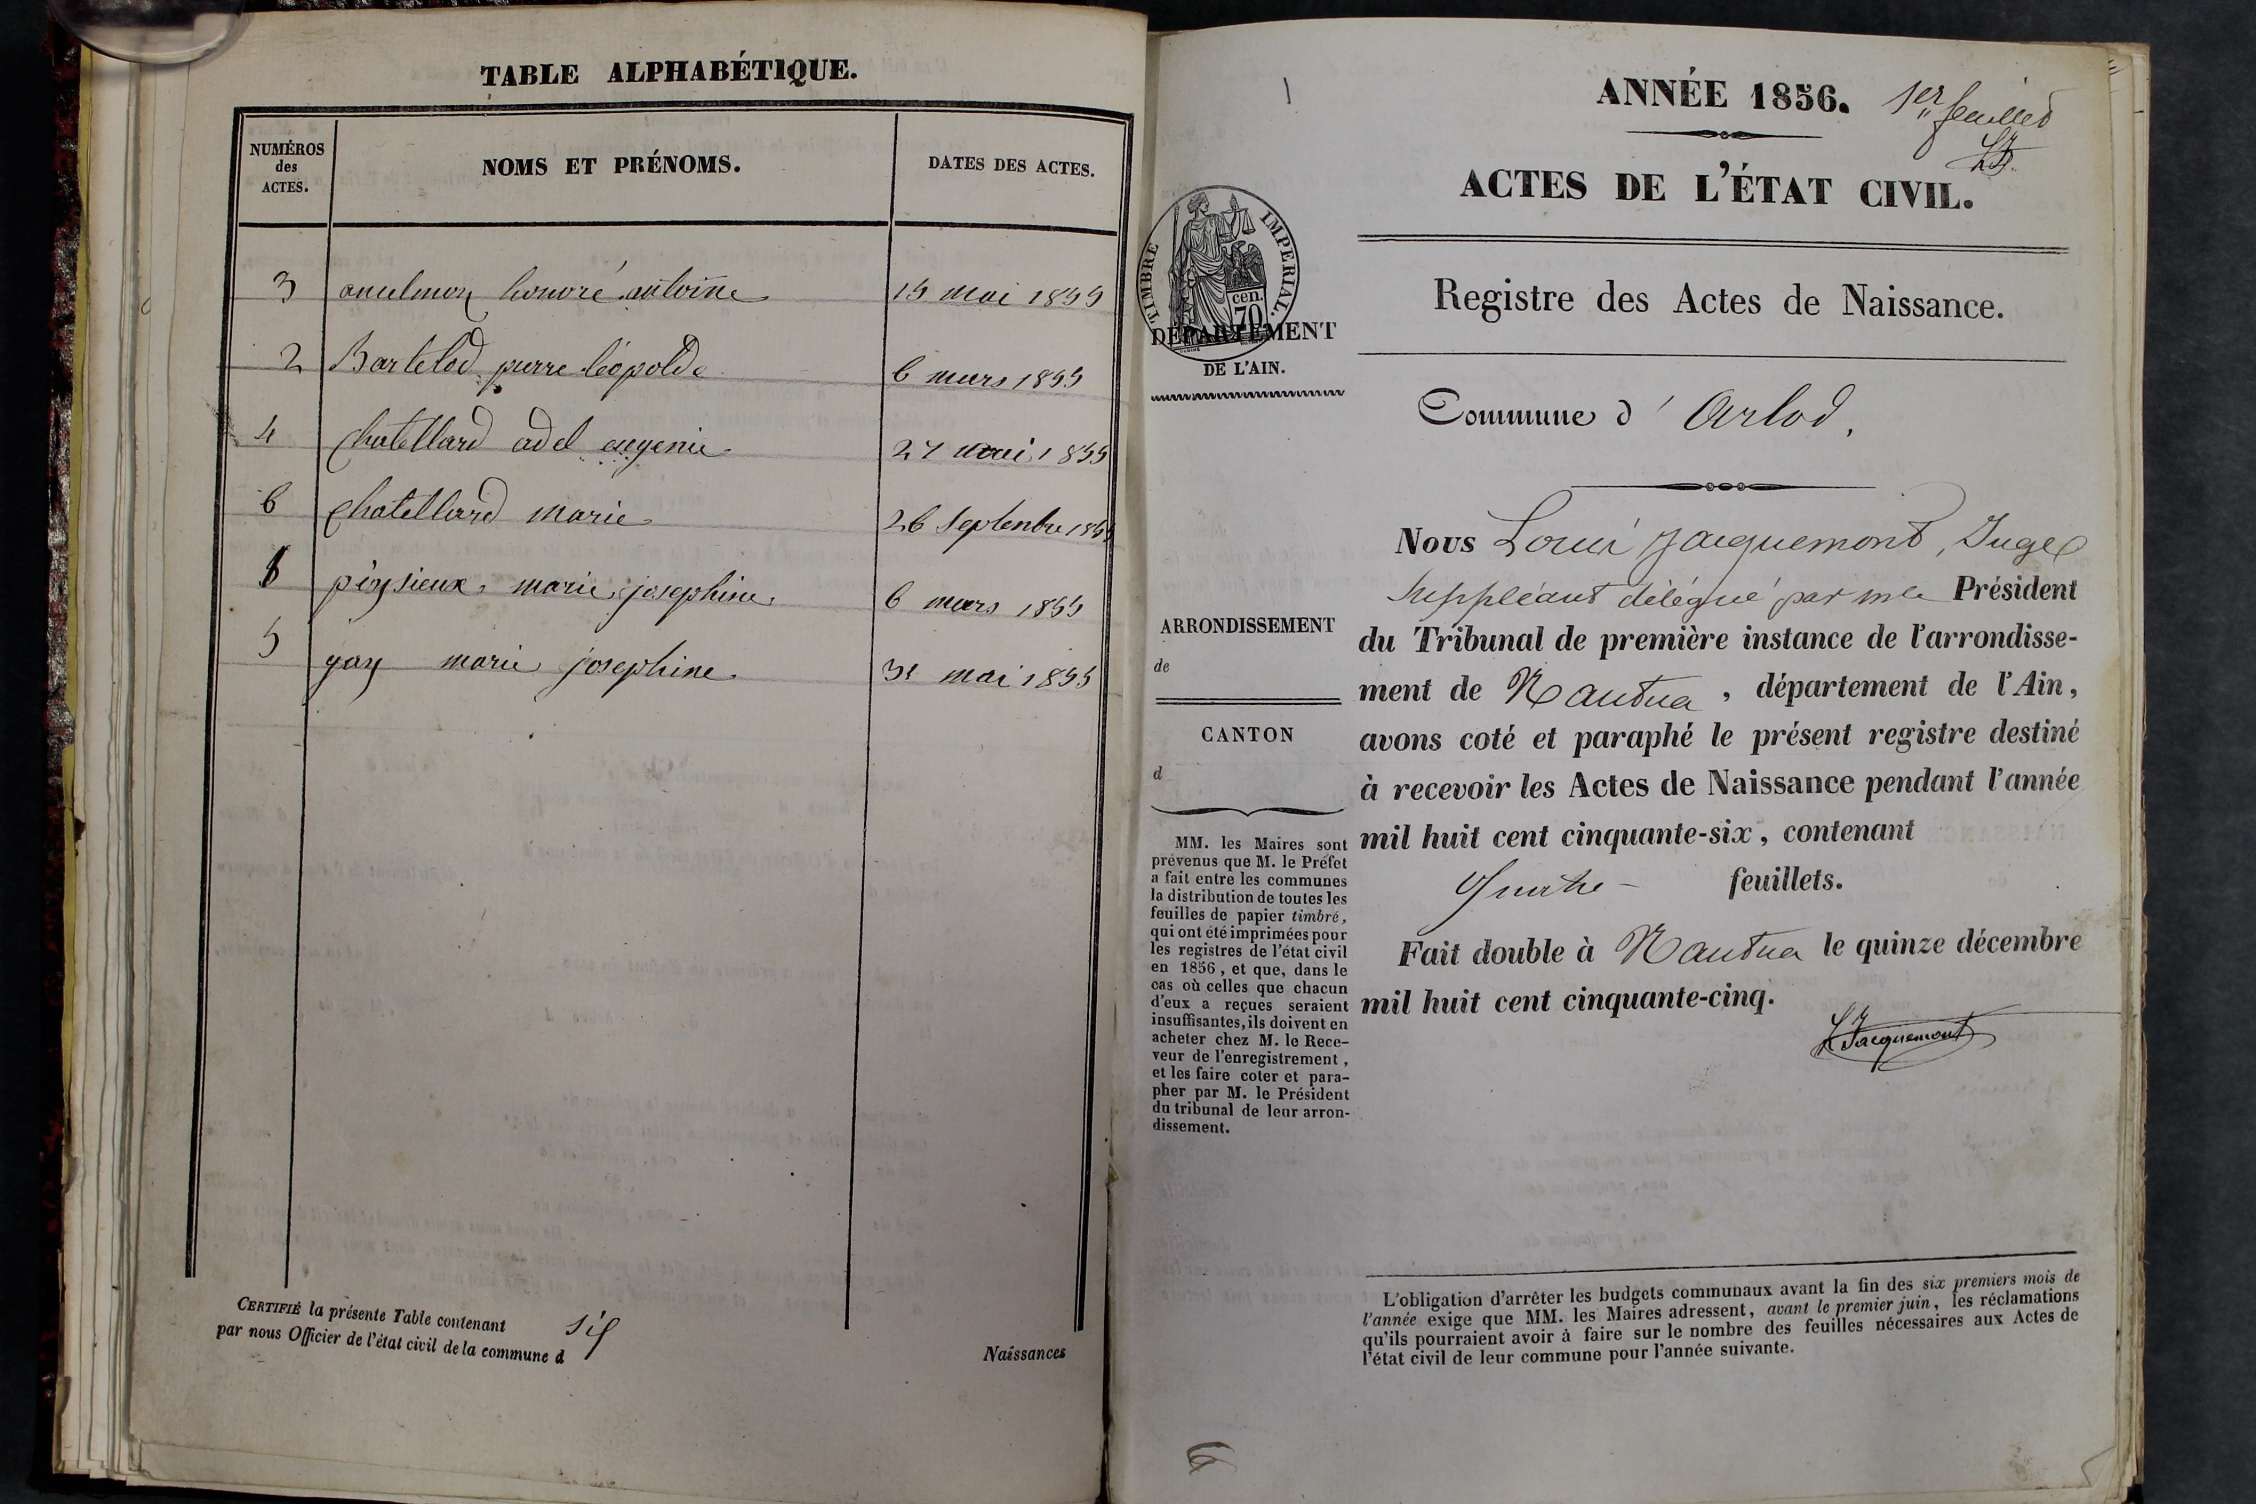 TABLE ALPHABÉTIQUE.
NUMÉROS
des
ACTES.
NOMS ET PRÉNOMS.
DATES DES ACTES.
3 anselmoz honoré antoine 15 mai 1855
2 Bartelod pierre léopolde 6 mars 1855
4 Chatellard adel eugenie 27 mai 1855
6 Chatellard marie 26 Septenbre 1855
marie josephine 6 mars 1855
5 gay marie josephine 31 mai 1855
CERTIFIÉ la présente Table contenant six
par nous Officier de l'état civil de la commune d
Naissances
1
ANNÉE 1856.
1er feuillet
LJ
ACTES DE L'ÉTAT CIVIL.
TIMBRE IMPÉRIAL.
70 cen.
DÉPARTEMENT
DE L'AIN.
Registre des Actes de Naissance.
Commune d' Arlod.
Nous Louis Jacquemont, Juge
Suppléant délégué par mr le Président
du Tribunal de première instance de l'arrondisse-
ment de Nantua, département de l'Ain,
avons coté et paraphé le présent registre destiné
à recevoir les Actes de Naissance pendant l'année
mil huit cent cinquante-six, contenant
Quatre feuillets.
Fait double à Nantua le quinze décembre
mil huit cent cinquante-cinq.
LJacquemont
ARRONDISSEMENT
de
CANTON
d
MM. les Maires sont
prévenus que M. le Préfet
a fait entre les communes
la distribution de toutes les
feuilles de papier timbré,
qui ont été imprimées pour
les registres de l'état civil
en 1856, et que, dans le
cas où celles que chacun
d'eux a reçues seraient
insuffisantes, ils doivent en
acheter chez M. le Rece-
veur de l'enregistrement,
et les faire coter et para-
pher par M. le Président
du tribunal de leur arron-
dissement.
L'obligation d'arrêter les budgets communaux avant la fin des six premiers mois de
l'année exige que MM. les Maires adressent, avant le premier juin, les réclamations
qu'ils pourraient avoir à faire sur le nombre des feuilles nécessaires aux Actes de
l'état civil de leur commune pour l'année suivante.